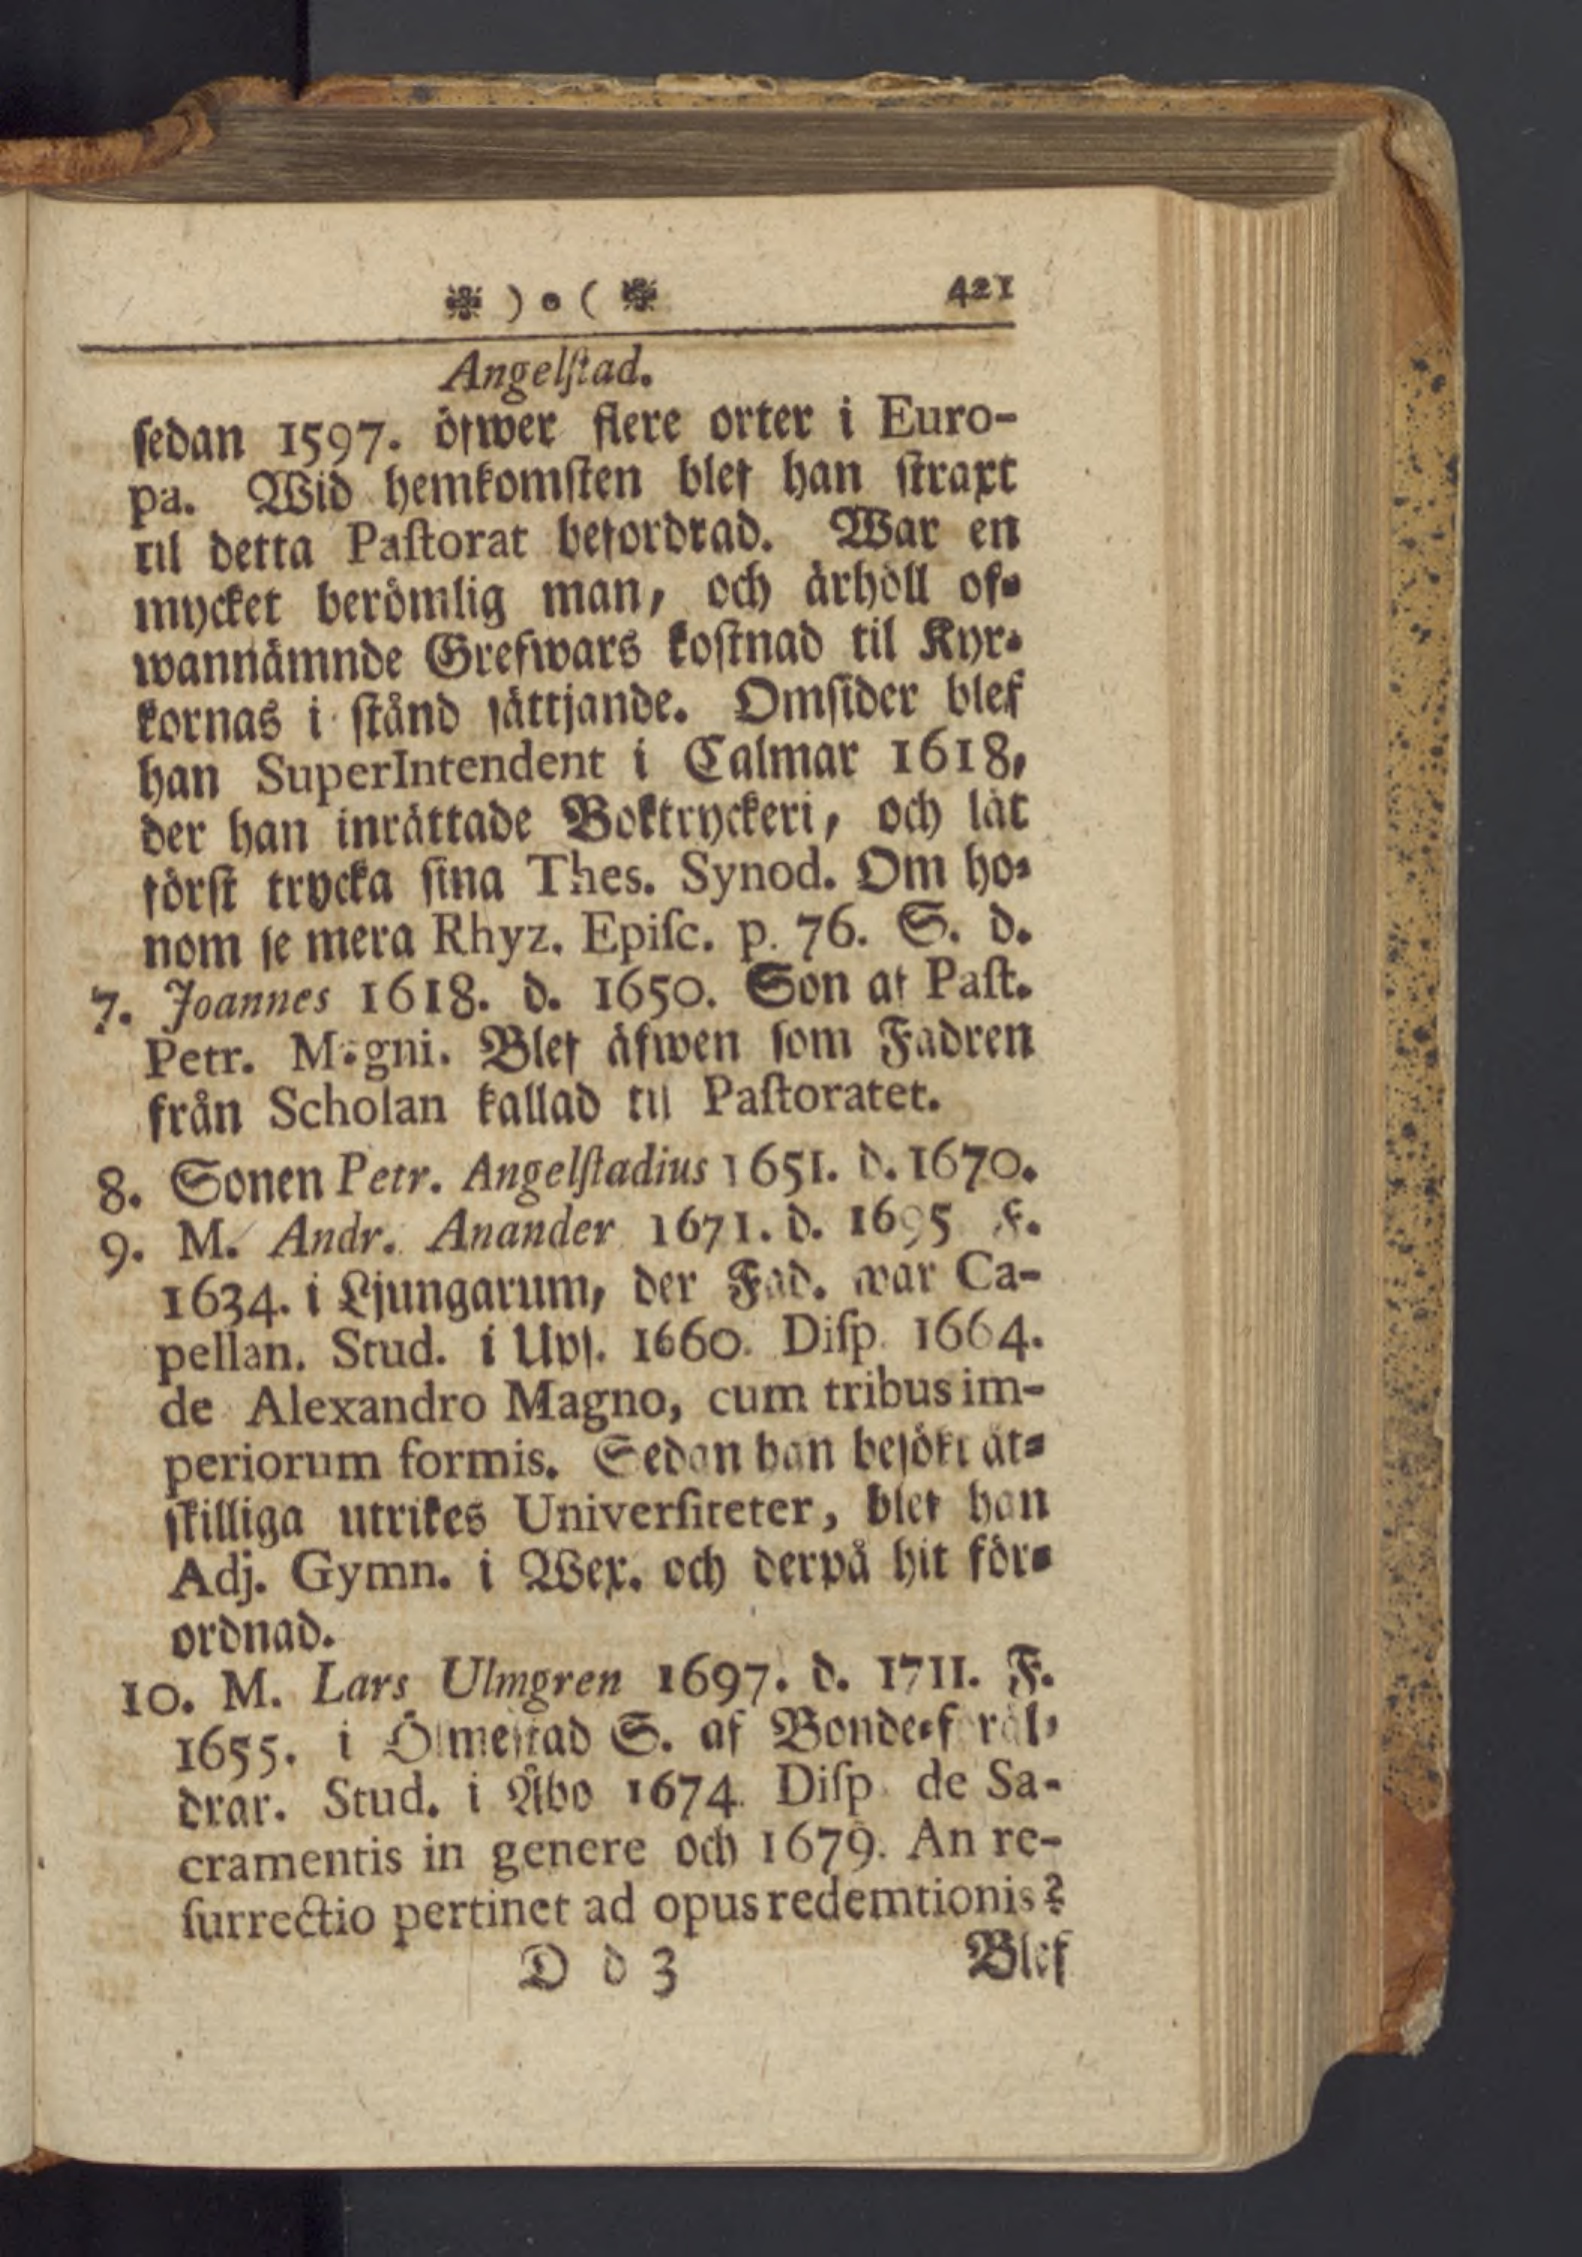 ❋ ) o ( ❋ 421
Angelſtad.
ſedan 1597. öfwer flere orter i Euro-
pa. Wid hemkomſten blef han ſtraxt
til detta Paſtorat befordrad. War en
mycket berömlig man, och ärhöll of-
wannämnde Grefwars koſtnad til Kyr-
kornas i ſtånd ſättjande. Omſider blef
han SuperIntendent i Calmar 1618,
der han inrättade Boktryckeri, och lät
förſt trycka ſina Thes. Synod. Om ho-
nom ſe mera Rhyz. Epiſc. p. 76. S. d.
7. Joannes 1618. d. 1650. Son af Paſt.
Petr. Magni. Blef äfwen ſom Fadren
från Scholan kallad til Paſtoratet.
8. Sonen Petr. Angelſtadius 1651. d. 1670.
9. M. Andr. Anander 1671. d. 1695 F.
1634. i Ljungarum, der Fad. war Ca-
pellan. Stud. i Upſ. 1660. Diſp. 1664.
de Alexandro Magno, cum tribus im-
periorum formis. Sedan han beſökt åt-
ſkilliga utrikes Univerſiteter, blef han
Adj. Gymn. i Wex. och derpå hit för-
ordnad.
10. M. Lars Ulmgren 1697. d. 1711. F.
1655. i Ölmeſtad S. af Bonde-föräl-
drar. Stud. i Åbo 1674. Diſp. de Sa-
cramentis in genere och 1679. An re-
ſurrectio pertinet ad opus redemtionis?
D d 3 Blef